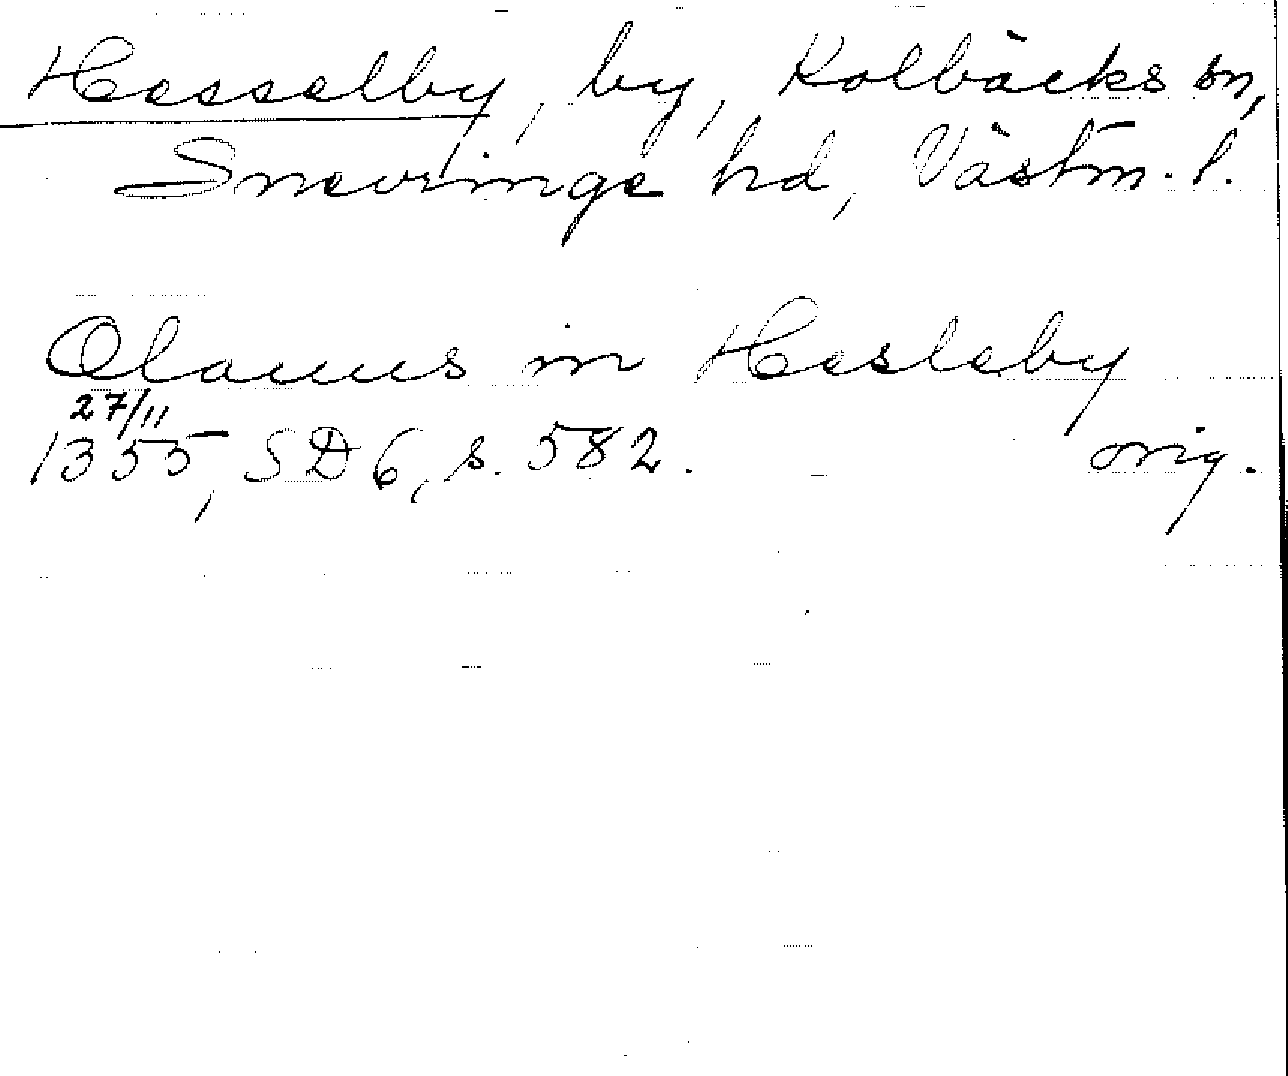 Hesselby, by, Kolbäcks sn,
Snevringe hd, Västm. l.
Olauus in Hesleby
27/11
1355, SD 6, s. 582. orig.